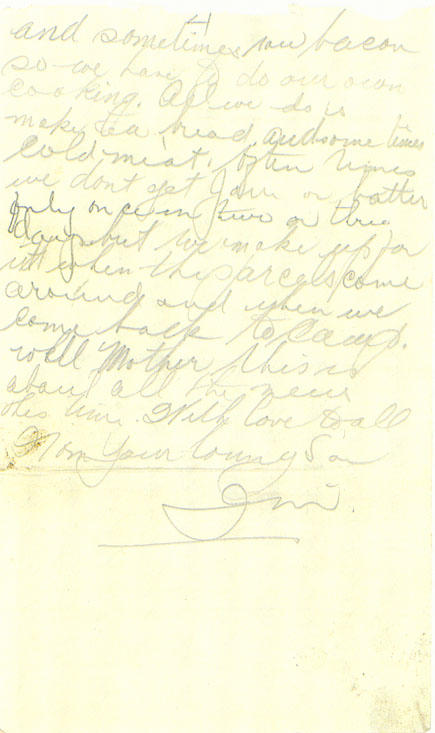 and sometimes raw bacon
so we have to do our own
cooking. All we do is
make tea bread and some times
cold meat. often times
we dont get Jam or butter
only once in two or three
days but we make up for
it when the parcels come
around and when we
come back to camp.
well Mother this is
about all the news
this time. With love to all
From Your loving Son